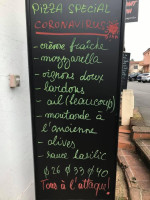 PIZZA SPECIAL
CORONAVIRUS
- crème fraîche
- mozzarella
- oignons doux
- lardons
- ail (beaucoup)
- moutarde à
l'ancienne
- olives
- sauce basilic
Ø 26 Ø 33 Ø 40
Tous à l'attaque!